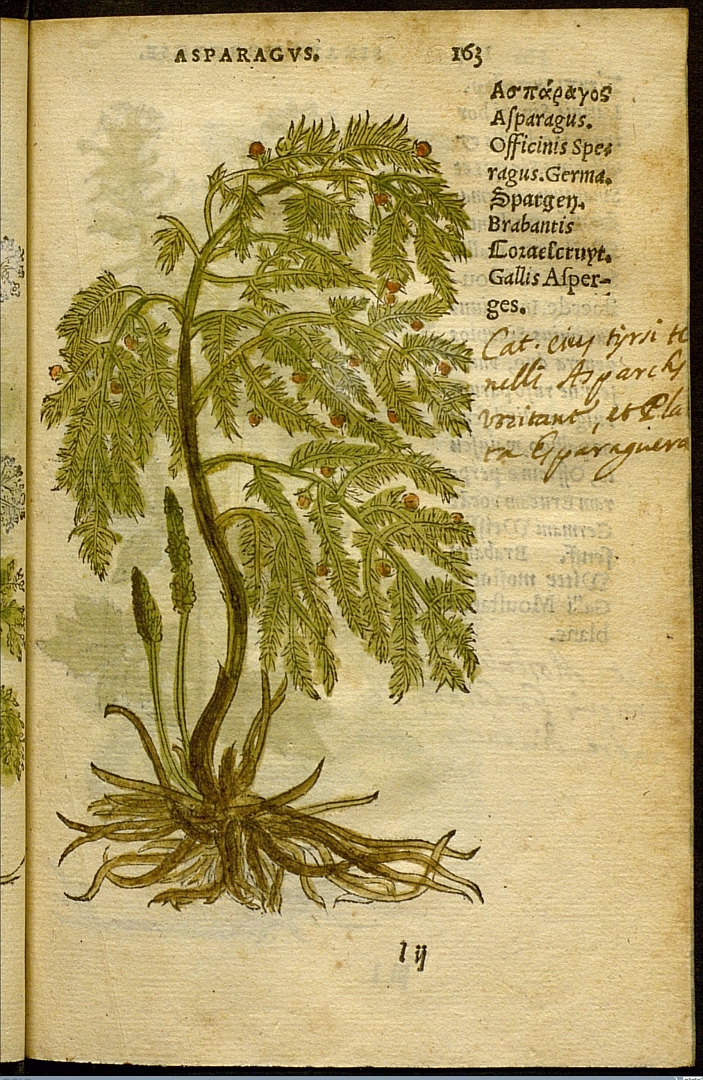 ASPARAGVS. 163
Ασπάραγος
Aſparagus.
Officinis Spe-
ragus. Germa.
Spargen.
Brabantis
Coraelcruyt.
Gallis Aſper-
ges.
Cat. eius tyrsi te
nelli Asparchs
, et Pla
ta Esparaguera
l ij